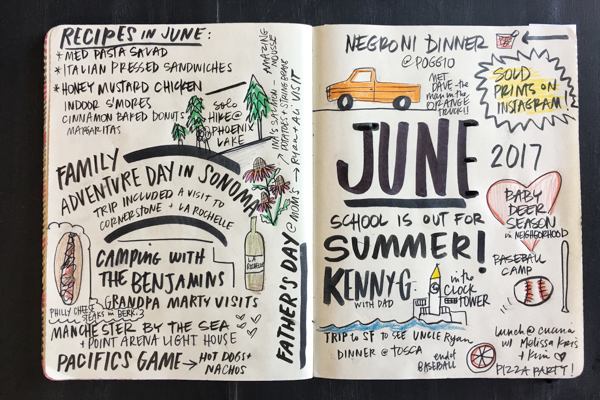 RECIPES IN JUNE:
* MED PASTA SALAD
* ITALIAN PRESSED SANDWICHES
* HONEY MUSTARD CHICKEN
INDOOR S'MORES
CINNAMON BAKED DONUTS
MARGARITAS
SOLO
HIKE @
PHOENIX
LAKE
INA'S SALMON
POTATOES + STRING BEANS
AMAZING
MOUSSE
FATHER'S DAY @ MOM'S → RYAN + ALI VISIT
FAMILY
ADVENTURE DAY IN SONOMA
TRIP INCLUDED A VISIT TO
CORNERSTONE + LA ROCHELLE
LA
ROCHELLE
CAMPING WITH
THE BENJAMINS
PHILLY CHEESE
STEAKS in BERK.
GRANDPA MARTY VISITS
MANCHESTER BY THE SEA
+ POINT ARENA LIGHT HOUSE
PACIFICS GAME → HOT DOGS +
NACHOS
NEGRONI DINNER
@ POGGIO
MET
DAVE - the
man in the
ORANGE
TRUCK!!
SOLD
PRINTS ON
INSTAGRAM!
JUNE
2017
SCHOOL IS OUT FOR
SUMMER!
BABY
DEER
SEASON
in NEIGHBORHOOD
KENNY G.
WITH DAD
in the
CLOCK
TOWER
BASEBALL
CAMP
TRIP to SF TO SEE UNCLE Ryan
DINNER @ TOSCA
end of
BASEBALL
lunch @ cucina
w/ Melissa Kris
+ Kim
PIZZA PARTY!